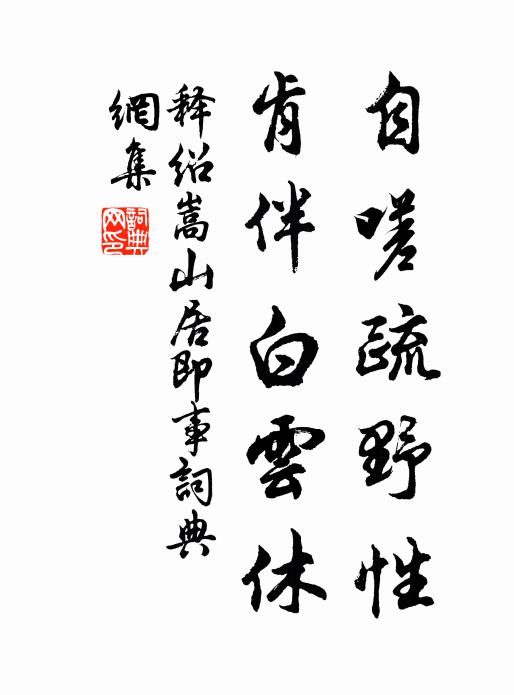 自嗟疏野性
肯伴白雲休
释绍嵩山居即事詞典
網集
詞典網印